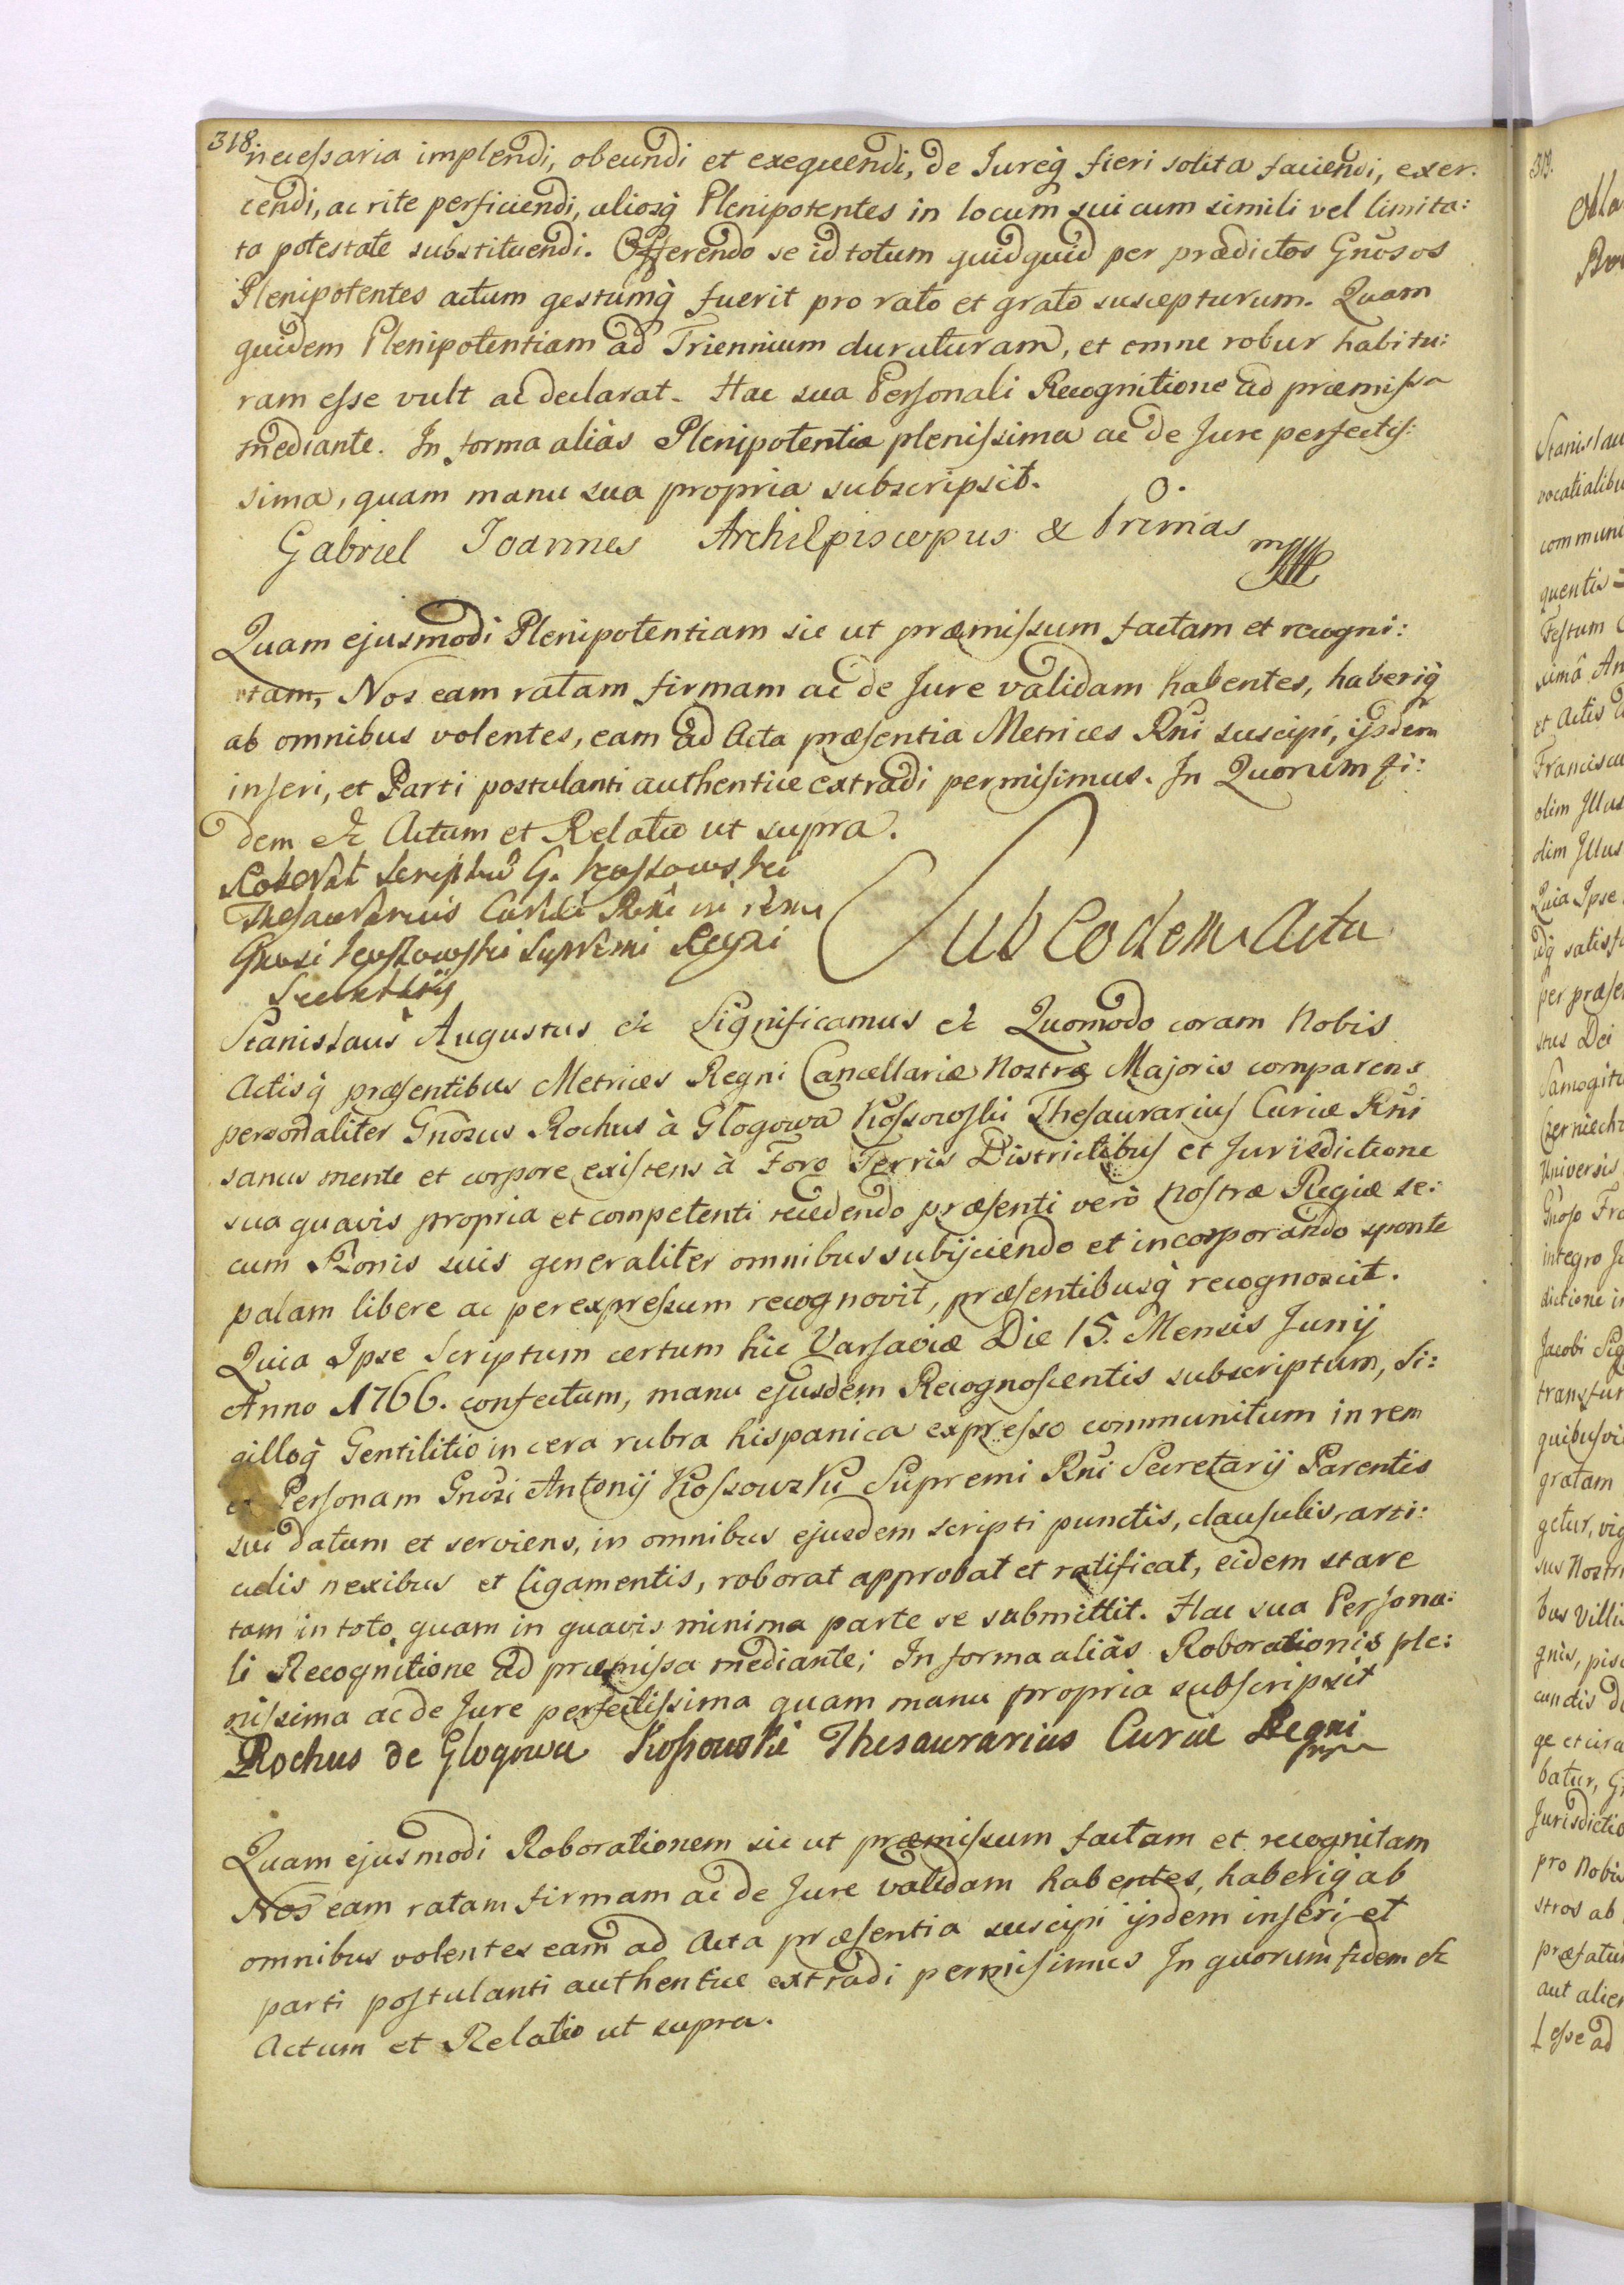 318.
necessaria implendi, obeundi et exequendi, de Jureq̀ fieri solita faciendi, exer:
cendi, ac rite perficiendi, aliosq̀ Plenipotentes in locum sui cum simili vel limita:
ta potestate substituendi. Offerendo se id totum quidquid per prædictos Gnosos
Plenipotentes actum gestumq̀ fuerit pro rato et grato suscepturum. Quam
quidem Plenipotentiam ad Triennium duraturam, et omne robur habitu:
ram esse vult ac declarat. Hac sua Personali Recognitione ad præmissa
mediante. In forma aliàs Plenipotentiæ plenissima ac de Jure perfectis:
sima, quam manu sua propria subscripsit.
Gabriel Joannes ArchiEpiscopus & Primas mpp
Quam ejusmodi Plenipotentiam sic ut præmissum factam et recogni:
tam, Nos eam ratam firmam ac de Jure validam habentes, haberiq̀
ab omnibus volentes, eam ad Acta præsentia Metrices Rñi suscipi, ijsdem
inseri, et Parti postulanti authentice extradi permisimus. In Quorum fi:
dem &c Actum et Relatio ut supra.
Roborat Scriptum G. Kossowski
Thesaurarius Curiæ Rñi in rem
Gnosi Kossowski Supremi Regni
Secretarij
Sub Eodem Actu
Stanislaus Augustus &c Significamus &c Quomodo coram Nobis
Actisq̀ præsentibus Metrices Regni Cancellariæ Nostræ Majoris comparens
personaliter Gnosus Rochus à Głogowa Kossowski Thesaurarius Curiæ Rñi
sanus mente et corpore existens à Foro Terris Districtibus et Jurisdictione
sua quavis propria et competenti recedendo præsenti verò Nostræ Regiæ se:
cum Bonis suis generaliter omnibus subijciendo et incorporando sponte
palam libere ac per expressum recognovit, præsentibusq̀ recognoscit.
Quia Ipse Scriptum certum hic Varsaviæ Die 15. Mensis Junij
Anno 1766. confectum, manu ejusdem Recognoscentis subscriptum, Si:
gilloq̀ Gentilitio in cera rubra hispanica expresso communitum in rem
et Personam Gnosi Antonij Kossowski Supremi Rñi Secretarij Parentis
sui datum et serviens, in omnibus ejusdem scripti punctis, clausulis, arti:
culis nexibus et ligamentis, roborat approbat et ratificat, eidem stare
tam in toto, quam in quavis minima parte se submittit. Hac sua Persona:
li Recognitione ad præmissa mediante; In forma aliàs Roborationis ple:
nissima ac de Jure perfectissima quam manu propria subscripsit
Rochus de Glogowa Kossowski Thesaurarius Curiæ Regni
mpp
Quam ejusmodi Roborationem sic ut præmissum factam et recognitam
Nos eam ratam firmam ac de Jure validam habentes, haberiq̀ ab
omnibus volentes eam ad Acta præsentia suscipi ijsdem inseri et
parti postulanti authentice extradi permisimus In quorum fidem &c
Actum et Relatio ut supra.